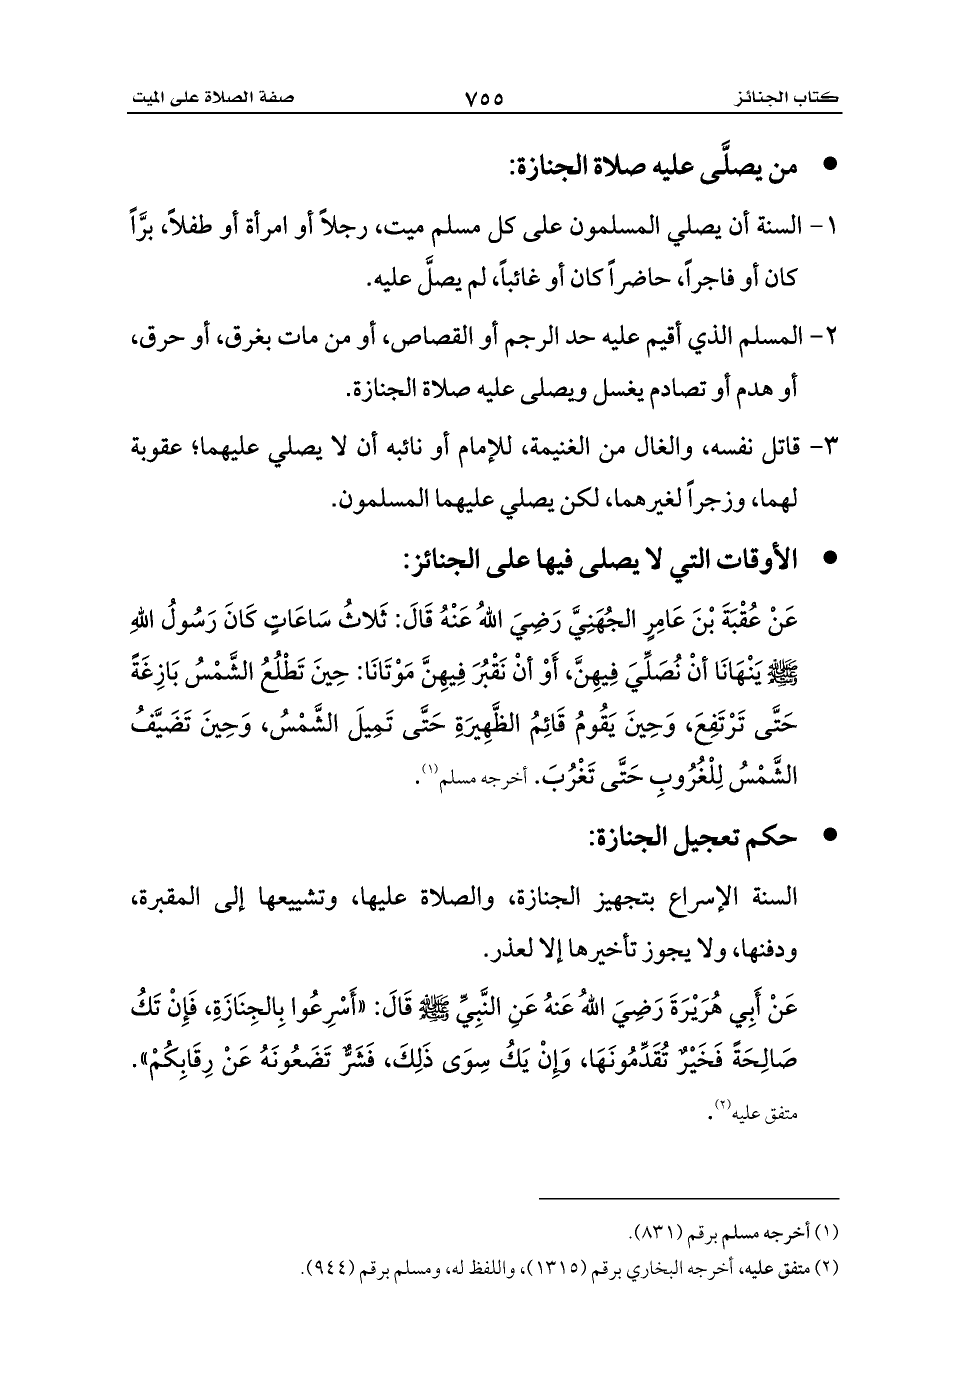 كتاب الجنائز ٧٥٥ صفة الصلاة على الميت
● من يصلَّى عليه صلاة الجنازة:
١- السنة أن يصلي المسلمون على كل مسلم ميت، رجلاً أو امرأة أو طفلاً، برَّاً
كان أو فاجراً، حاضراً كان أو غائباً، لم يصلَّ عليه.
٢- المسلم الذي أقيم عليه حد الرجم أو القصاص، أو من مات بغرق، أو حرق،
أو هدم أو تصادم يغسل ويصلى عليه صلاة الجنازة.
٣- قاتل نفسه، والغال من الغنيمة، للإمام أو نائبه أن لا يصلي عليهما؛ عقوبة
لهما، وزجراً لغيرهما، لكن يصلي عليهما المسلمون.
● الأوقات التي لا يصلى فيها على الجنائز:
عَنْ عُقْبَةَ بْنَ عَامِرٍ الجُهَنِيَّ رَضِيَ اللهُ عَنْهُ قَالَ: ثَلاثُ سَاعَاتٍ كَانَ رَسُولُ اللهِ
ﷺ يَنْهَانَا أنْ نُصَلِّيَ فِيهِنَّ، أَوْ أنْ نَقْبُرَ فِيهِنَّ مَوْتَانَا: حِينَ تَطْلُعُ الشَّمْسُ بَازِغَةً
حَتَّى تَرْتَفِعَ، وَحِينَ يَقُومُ قَائِمُ الظَّهِيرَةِ حَتَّى تَمِيلَ الشَّمْسُ، وَحِينَ تَضَيَّفُ
الشَّمْسُ لِلْغُرُوبِ حَتَّى تَغْرُبَ. أخرجه مسلم(١).
● حكم تعجيل الجنازة:
السنة الإسراع بتجهيز الجنازة، والصلاة عليها، وتشييعها إلى المقبرة،
ودفنها، ولا يجوز تأخيرها إلا لعذر.
عَنْ أَبِي هُرَيْرَةَ رَضِيَ اللهُ عَنهُ عَنِ النَّبِيِّ ﷺ قَالَ: «أَسْرِعُوا بِالجِنَازَةِ، فَإِنْ تَكُ
صَالِحَةً فَخَيْرٌ تُقَدِّمُونَهَا، وَإِنْ يَكُ سِوَى ذَلِكَ، فَشَرٌّ تَضَعُونَهُ عَنْ رِقَابِكُمْ».
متفق عليه(٢).
(١) أخرجه مسلم برقم (٨٣١).
(٢) متفق عليه، أخرجه البخاري برقم (١٣١٥)، واللفظ له، ومسلم برقم (٩٤٤).